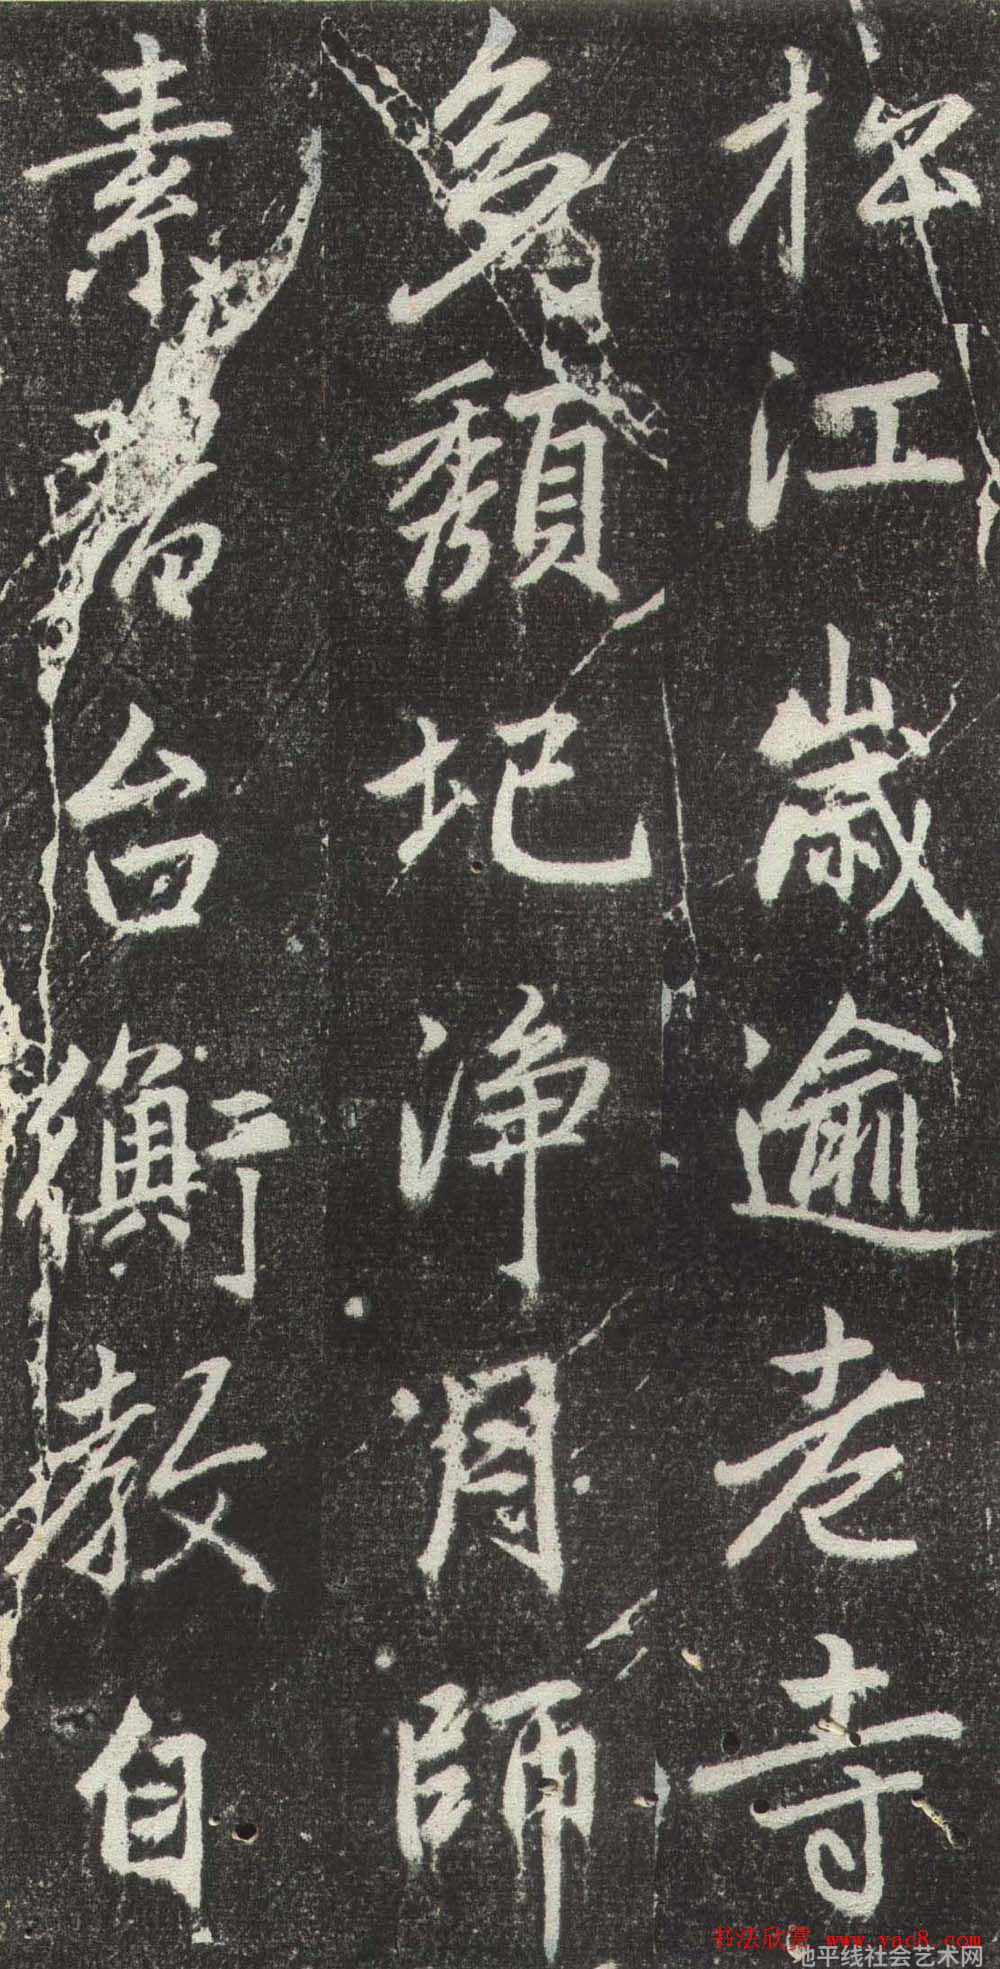 松江歲逾老寺
多頹圮淨月師
素習台衡教自
书法欣赏 www.yac8.com
地平线社会艺术网